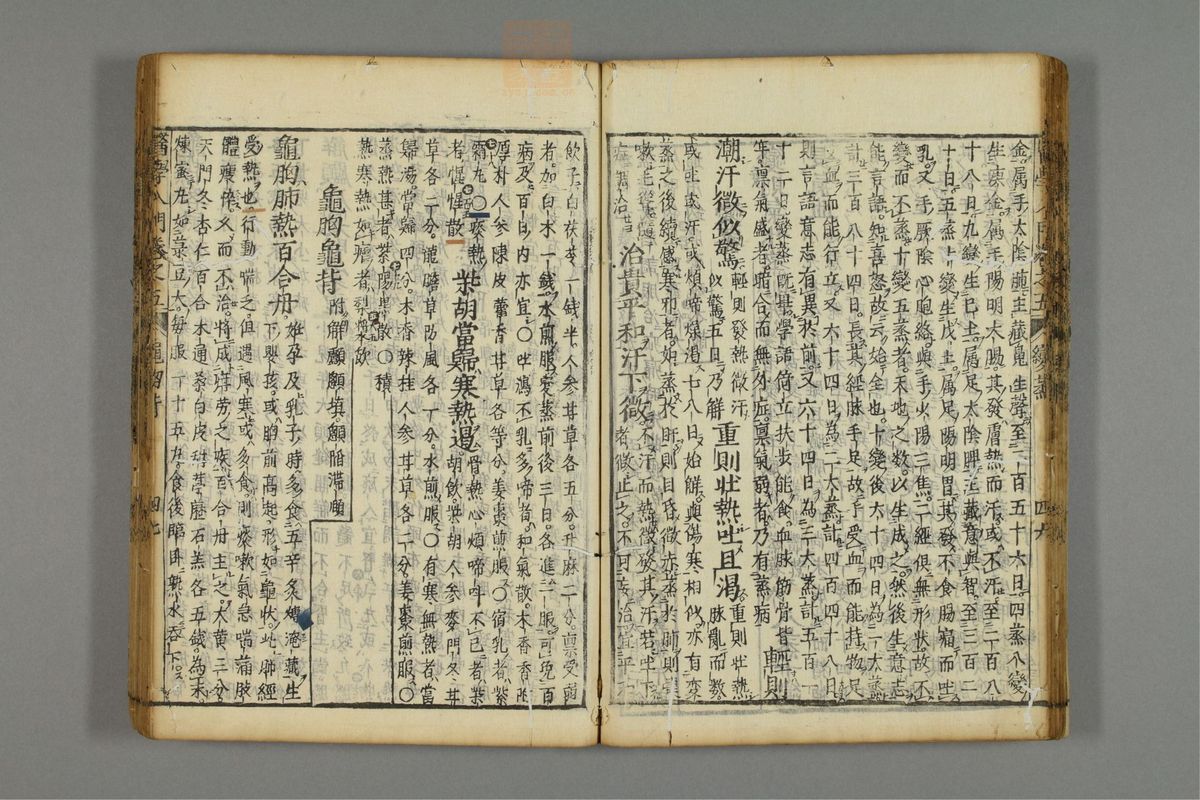 金屬手太陰肺主藏魄生聲至二百五十六日四蒸八變
生庚金屬手陽明大腸其發膚熱而汗或不汗至二百八
十八日九變生己土屬足太陰脾主藏意與智至三百二
十日五蒸十變生戊土屬足陽明胃其發不食腸痛而吐
乳又手厥陰心胞絡與手火陽三焦二經俱無形狀故不
變而不蒸十變五蒸者天地之數以生成之然後生意志
能言語知喜怒故云始全也十變後六十四日為一大蒸
計三百八十四日長其經脉手足故手受血而能持物足
受血而能行立又六十四日為二大蒸計四百四十八日
則言語意志有異於前又六十四日為三大蒸計五百一
十二日變蒸既畢學語倚立扶步能食血脉筋骨皆
牢稟氣盛者暗合而無外症稟氣弱者乃有蒸病 輕則
潮汗微似驚 輕則發熱微汗似驚五日乃解 重則壯熱吐且渴 重則壯熱脉亂而數
或吐或汗或煩啼燥渴七八日始解與傷寒相似亦有變
蒸之後續感寒邪者如蒸於肝則目昏微赤蒸於肺則
嗽毛聳 不汗而熱微發其汗若吐下
治貴平和汗下微 者微止之不可妄治宜平
飲子白茯苓一錢半人參甘草各五分升麻二分稟受弱
者加白术一錢水煎服變蒸前後三日各進一服可免百
病及百日內亦宜〇吐瀉不乳多啼者和氣散木香香附
厚朴人參陳皮藿香甘草各等分姜棗煎服〇宿乳者紫
霜丸〇痰熱者惺惺散 柴胡當歸寒熱過 骨熱心煩啼叫不已者柴
胡飲柴胡人參麥門冬甘
草各二分龍膽草防風各一分水煎服〇有寒無熱者當
歸湯當歸四分木香辣桂人參甘草各二分姜棗煎服〇
蒸熱甚者紫陽黑散〇積
熱寒熱如瘧者梨漿飲
龜胸龜背 附解顱顱填顱陷滯頤
龜胸肺熱百合丹 妊孕及乳子時多食五辛炙煿濕藏生
下嬰孩或胸前高起形如龜狀此肺經
受熱也行動喘乏但遇風寒或多食則痰嗽氣急喘滿肢
體瘦倦久而不治將成疳勞之疾百合丹主之大黃三分
天門冬杏仁百合木通桑白皮甜葶藶石羔各五錢為末
煉蜜丸如彔豆大每服一十五丸食後臨臥熟水吞下
醫學入門卷之五 龜胸背 四七